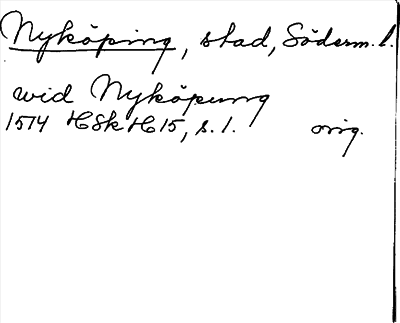 Nyköping, stad, Söderm. l.
wid Nyköpung
1574 HSk H 15, s. 1. orig.